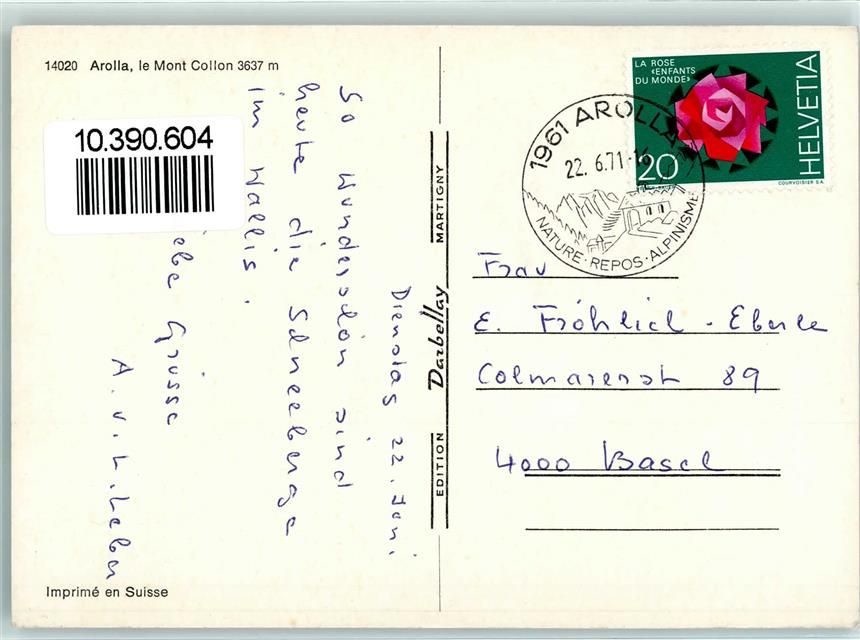 14020 Arolla, le Mont Collon 3637 m
10.390.604
Dienstag 22. Juni.
So wunderschön sind
heute die Schneeberge
im Wallis.
Grüsse
A. v. L. Leber
Imprimé en Suisse
EDITION Darbellay MARTIGNY
LA ROSE
«ENFANTS
DU MONDE»
20
HELVETIA
COURVOISIER S.A.
1961 AROLLA
22. 6.71
NATURE · REPOS · ALPINISME
Frau
E. Fröhlich - Eberle
Colmarerst 89
4000 Basel